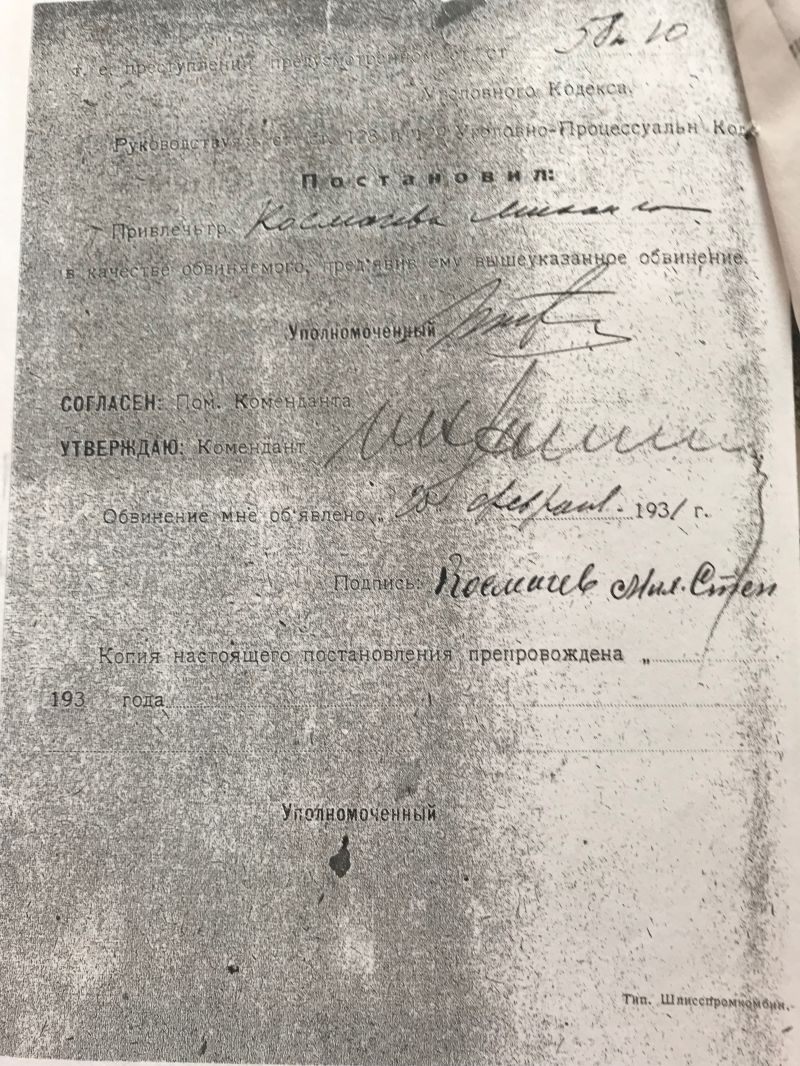 т. е. преступлении предусмотренном ст. ст 58 п 10
Уголовного Кодекса.
Руководствуясь ст. ст. 128 и 129 Уголовно-Процессуальн Код
Постановил:
Привлечь гр. Космачева
в качестве обвиняемого, пред'явив ему вышеуказанное обвинение.
Уполномоченный
СОГЛАСЕН: Пом. Коменданта
УТВЕРЖДАЮ: Комендант
Обвинение мне об'явлено „ февраля 1931 г.
Подпись: Космачев Мих. Степ
Копия настоящего постановления препровождена „
193 года
Уполномоченный
Тип. Шлисспромкомбин.